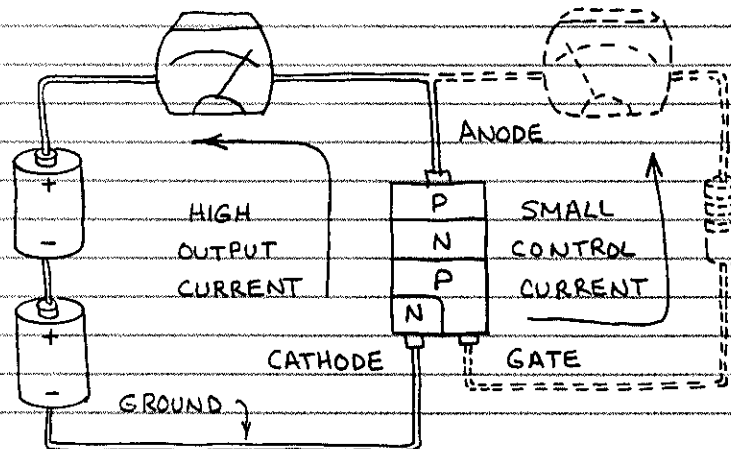 ANODE
+
-
HIGH
OUTPUT
CURRENT
P
N
P
N
SMALL
CONTROL
CURRENT
+
-
CATHODE
GATE
GROUND